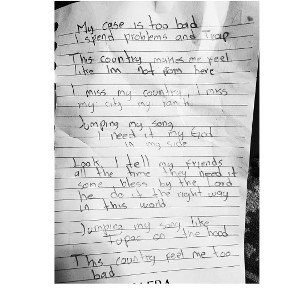 My case is too bad
I spend problems and Trap
This country makes me feel
like Im not born here
I miss my country, I miss
my city my
Jumping my song
I need it my God
in my side
Look, I tell my friends
all the time they need it
some bless by the Lord
he do it the right way
in this world
Jumping my song like
Tupac on the hood
This country feel me too
bad